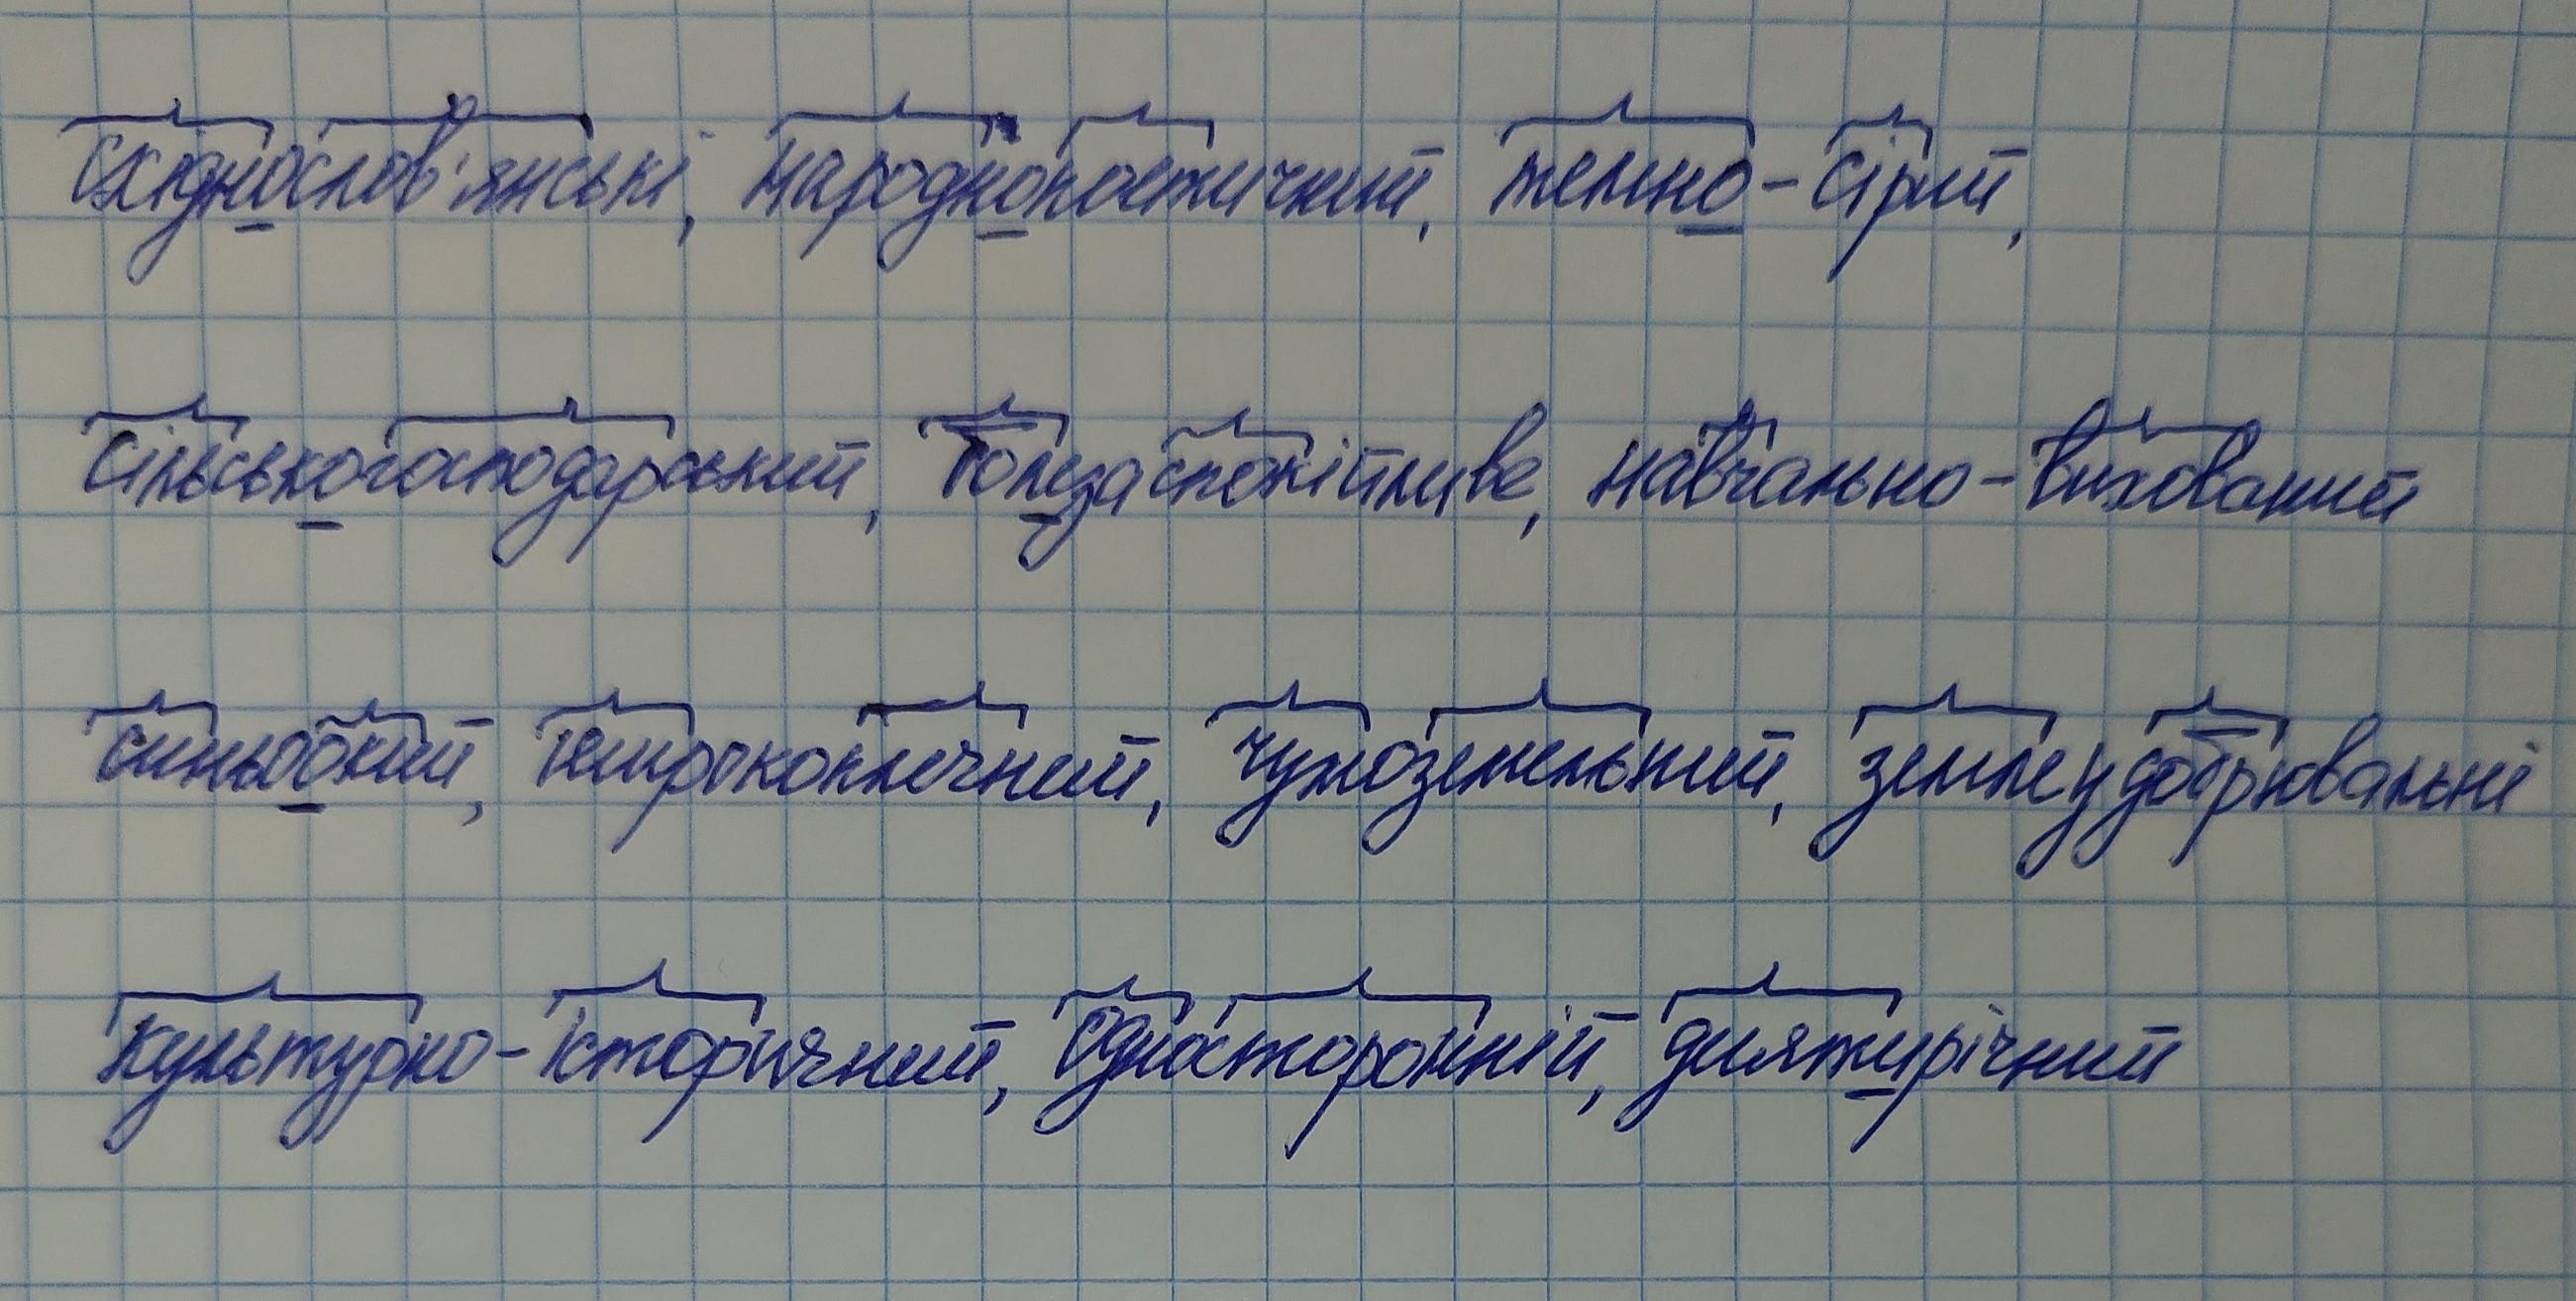 східнослов'янські, народнопоетичний, темно-сірий,
сільськогосподарський, навчально-вихований
синьоокий, широкоплечний, чужоземельний, землеудобрювальні
культурно-історичний, односторонній, дев'ятирічний